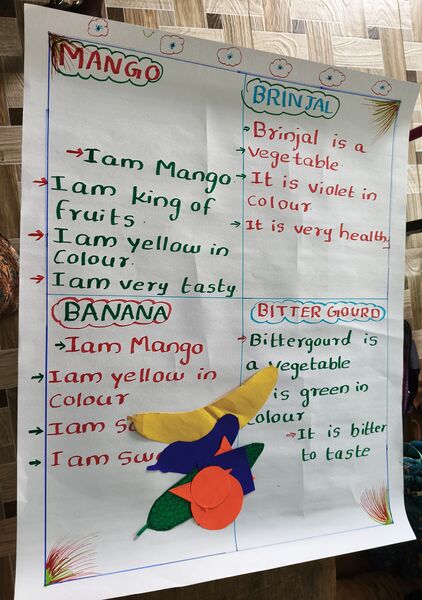 MANGO
Iam Mango
Iam king of
fruits.
Iam yellow in
Colour.
Iam very tasty
BRINJAL
Brinjal is a
vegetable
It is violet in
colour
It is very healthy
BANANA
Iam Mango
Iam yellow in
Colour
Iam
Iam
BITTER GOURD
Bittergourd is
a vegetable
is green in
colour
It is bitter
to taste